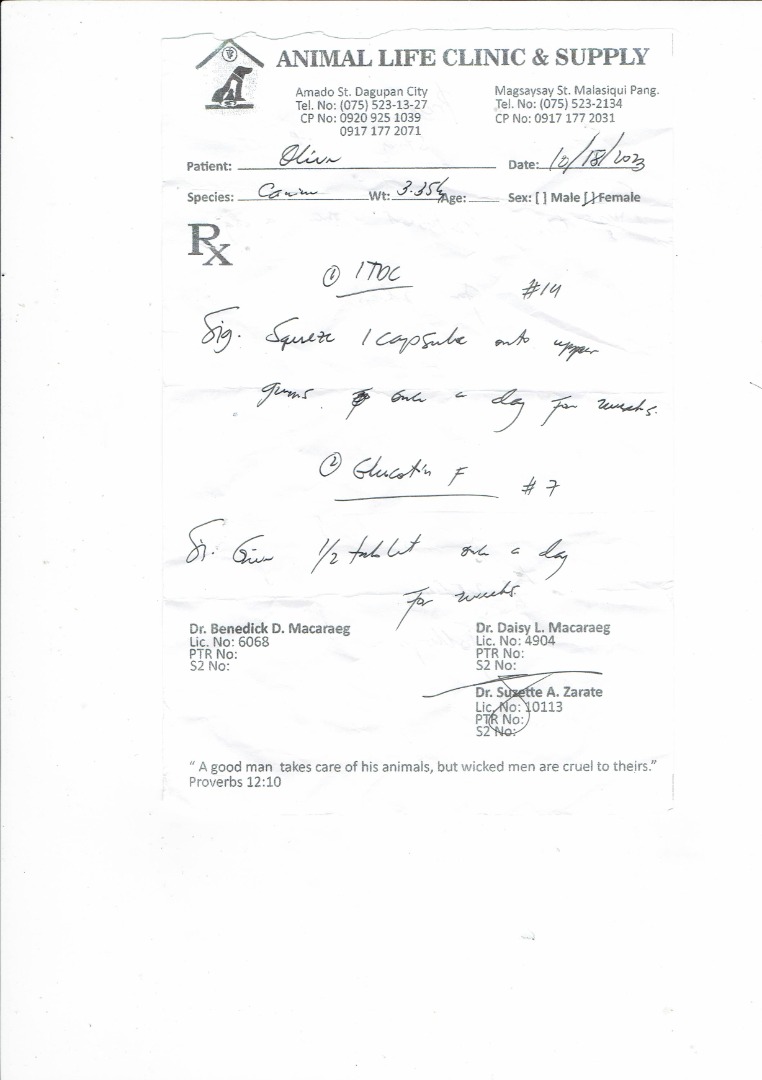 ANIMAL LIFE CLINIC & SUPPLY
Amado St. Dagupan City
Tel. No: (075) 523-13-27
CP No: 0920 925 1039
0917 177 2071
Magsaysay St. Malasiqui Pang.
Tel. No: (075) 523-2134
CP No: 0917 177 2031
Patient: Date: 10/18/2023
Species: Canine Wt: 3.35kg Age: Sex: [ ] Male [/] Female
Rx
① #14
Sig. Squeeze 1 capsule onto upper
gums once a day for weeks.
② F #7
Give 1/2 tablet once a day
for weeks.
Dr. Benedick D. Macaraeg
Lic. No: 6068
PTR No:
S2 No:
Dr. Daisy L. Macaraeg
Lic. No: 4904
PTR No:
S2 No:
Dr. Suzette A. Zarate
Lic. No: 10113
PTR No:
S2 No:
“ A good man takes care of his animals, but wicked men are cruel to theirs.”
Proverbs 12:10